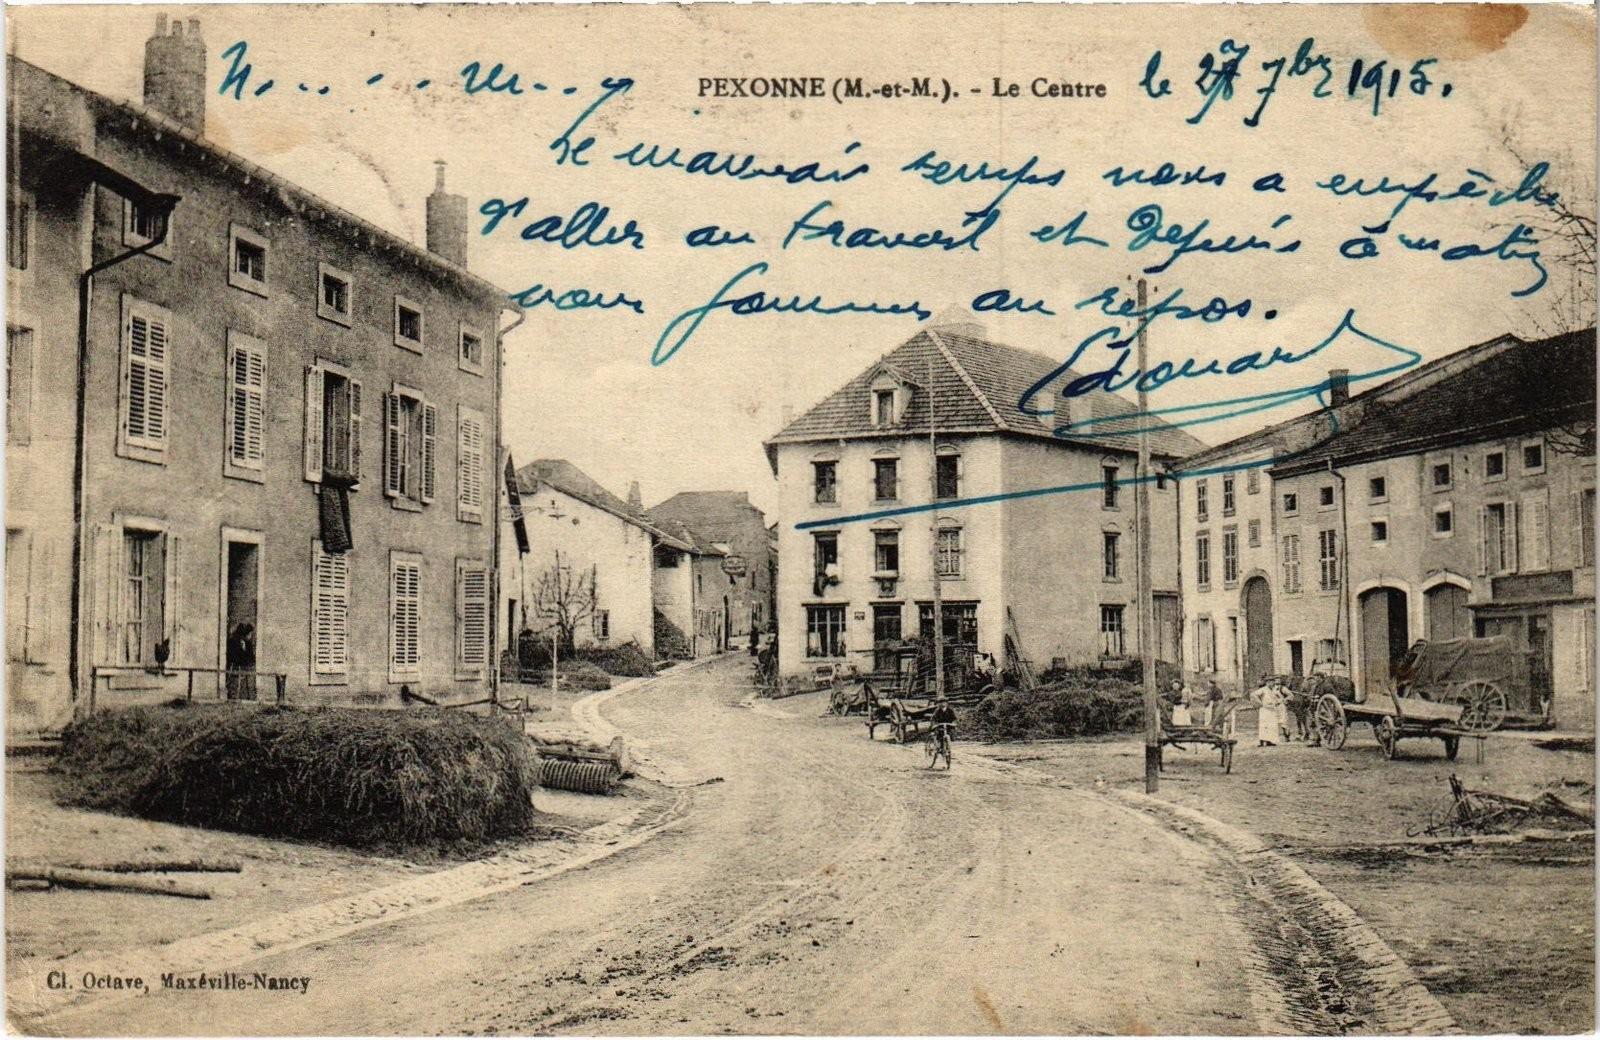 PEXONNE (M.-et-M.). - Le Centre
le 27 7bre 1915.
Le mauvais temps nous a empêché
d'aller au travail et depuis ce matin
nous sommes au repos.
Edouard
Cl. Octave, Maxéville-Nancy